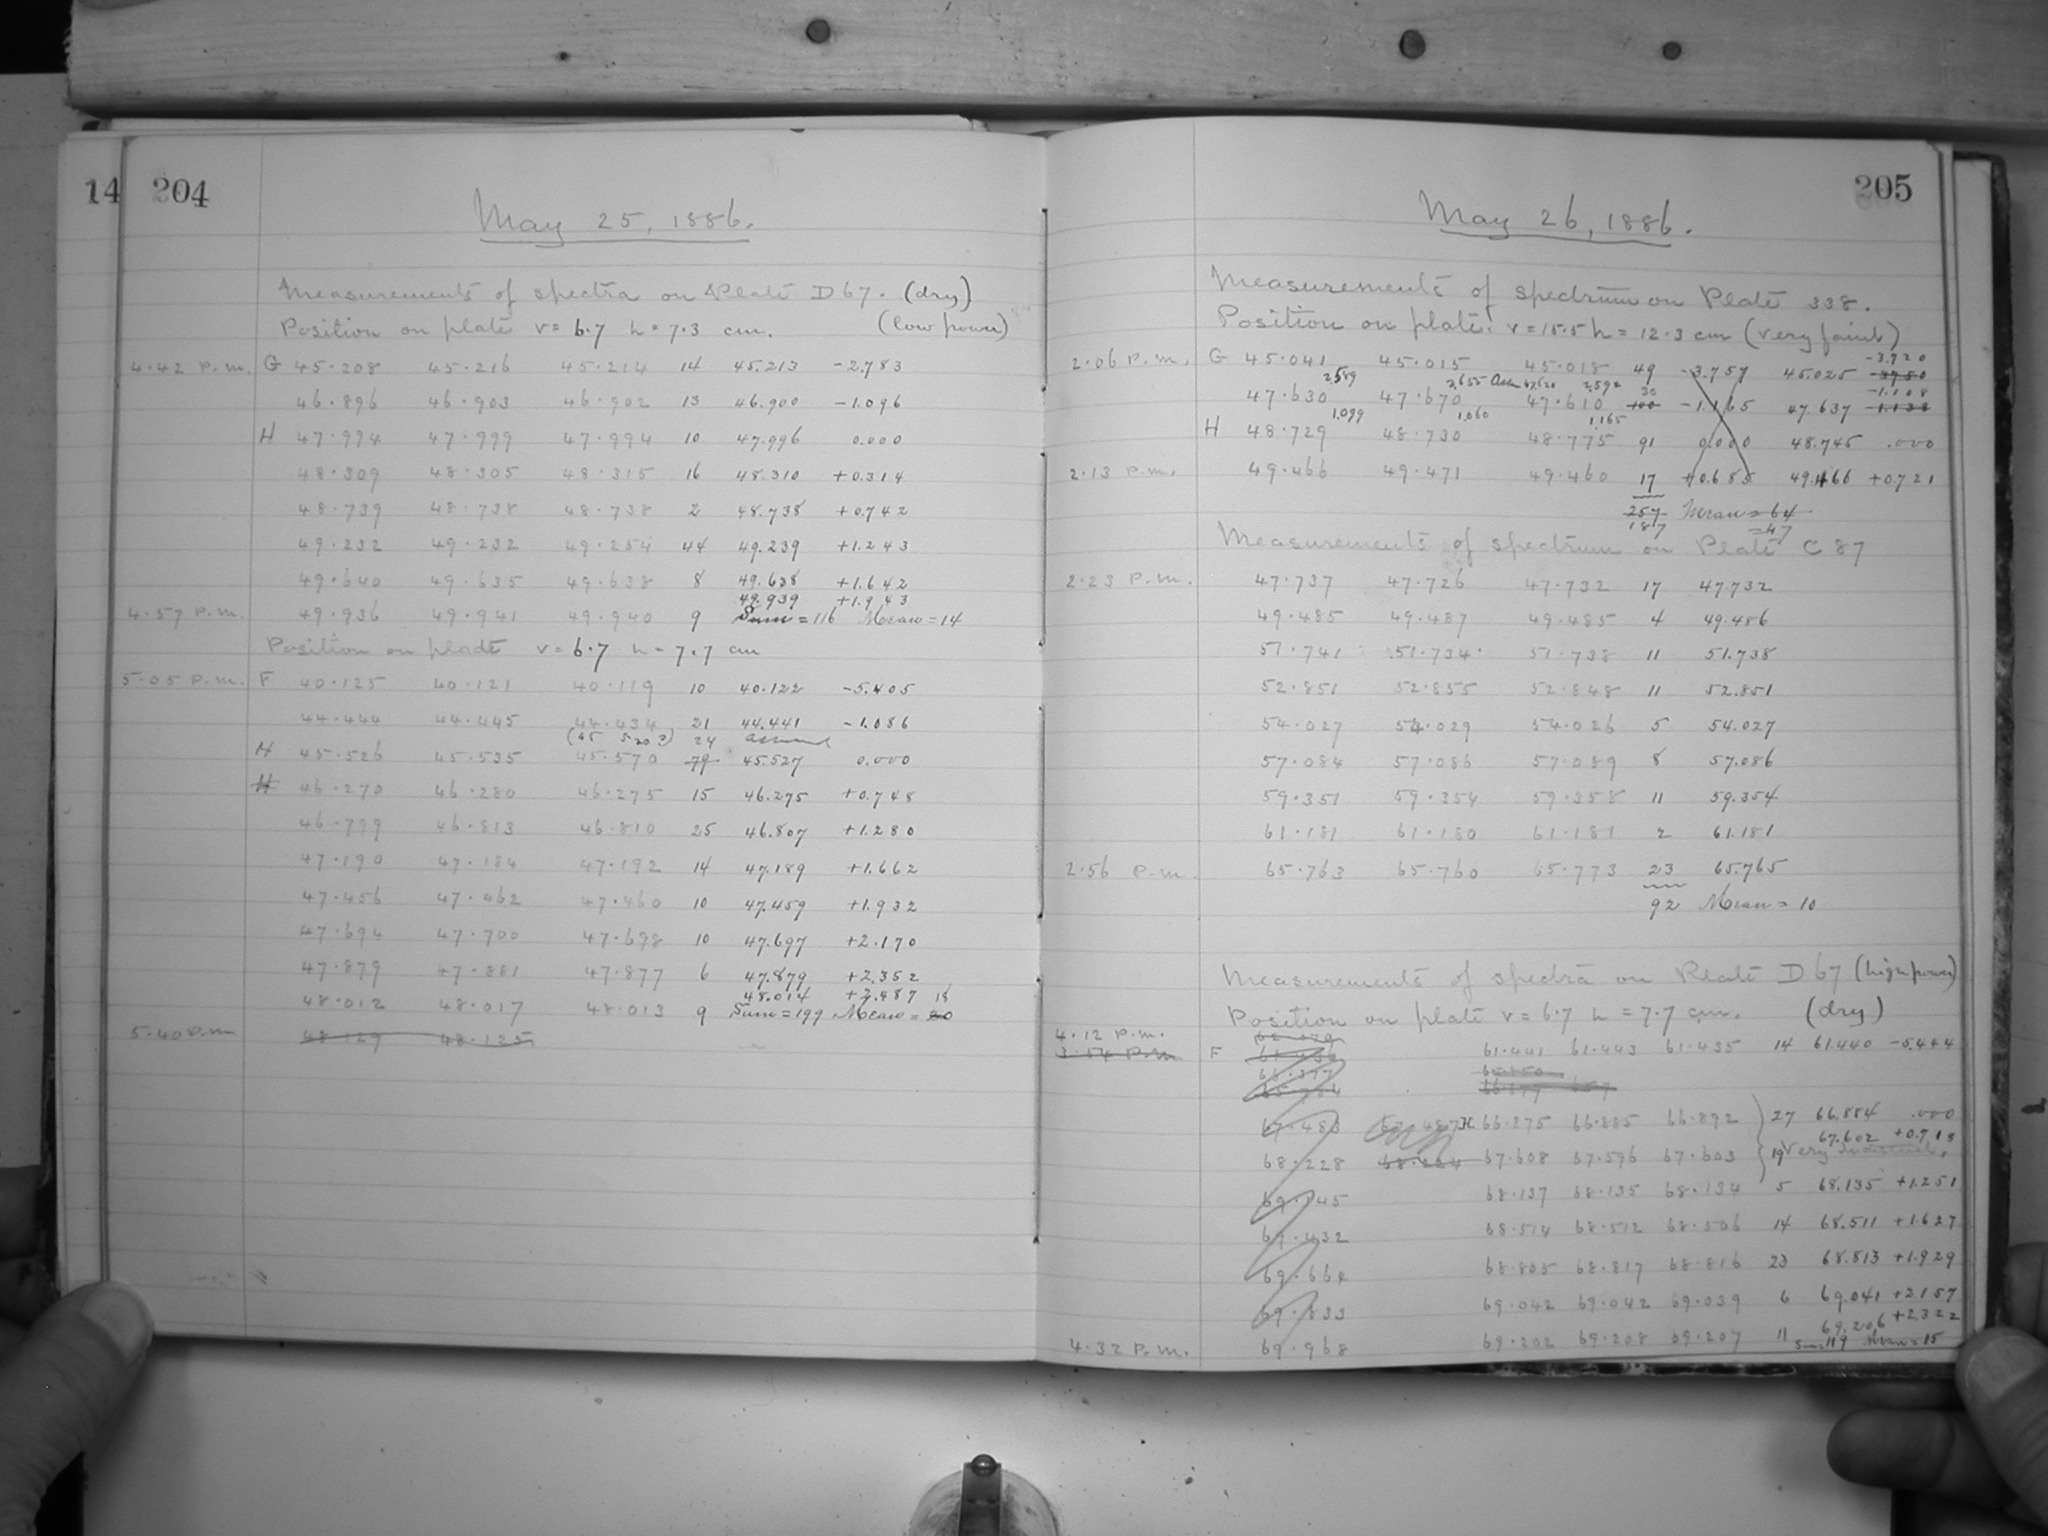 14 204
May 25, 1886.
Measurements of spectra on Plate D 67. (dry)
Position on plate v = 6.7 h = 7.3 cm. (low power)
4.42 P.m. G 45.208 45.216 45.214 14 45.213 -2.783
46.896 46.903 46.902 13 46.900 -1.096
H 47.994 47.999 47.994 10 47.996 0.000
48.309 48.305 48.315 16 48.310 +0.314
48.739 48.738 48.738 2 48.738 +0.742
49.232 49.232 49.254 44 49.239 +1.243
49.640 49.635 49.638 8 49.638 +1.642
49.939 +1.943
4.57 P.m. 49.936 49.941 49.940 9 Sum = 116 Mean = 14
Position on plate v = 6.7 h = 7.7 cm
5.05 P.m. F 40.125 40.121 40.119 10 40.122 -5.405
44.444 44.445 44.434 21 44.441 -1.086
(45 520?) 24 assumed
H 45.526 45.535 45.570 79 45.527 0.000
H 46.270 46.280 46.275 15 46.275 +0.748
46.799 46.813 46.810 25 46.807 +1.280
47.190 47.184 47.192 14 47.189 +1.662
47.456 47.462 47.460 10 47.459 +1.932
47.694 47.700 47.698 10 47.697 +2.170
47.879 47.881 47.877 6 47.879 +2.352
48.014 +2.487 18
48.012 48.017 48.013 9 Sum = 199 Mean = 20
5.40 P.m 48.129 48.125
205
May 26, 1886.
Measurements of spectrum on Plate 338.
Position on plate. v = 15.5 h = 12.3 cm (very faint)
-3.720
2.06 P.m. G 45.041 45.015 45.018 49 -3.757 45.025 -3.750
2.589 2.655 47.620 2.592 30 -1.108
47.630 47.670 47.610 100 -1.165 47.637 -1.138
1.099 1.060 1.165
H 48.729 48.730 48.775 91 0.000 48.745 .000
2.13 P.m. 49.466 49.471 49.460 17 +0.685 49.466 +0.721
257 Mean = 64
187 = 47
Measurements of spectrum on Plate C 87
2.23 P.m. 47.737 47.726 47.732 17 47.732
49.485 49.487 49.485 4 49.486
51.741 51.734 51.738 11 51.738
52.851 52.855 52.848 11 52.851
54.027 54.029 54.026 5 54.027
57.084 57.086 57.089 8 57.086
59.351 59.354 59.358 11 59.354
61.181 61.180 61.181 2 61.181
2.56 P.m. 65.763 65.760 65.773 23 65.765
92 Mean = 10
Measurements of spectra on Plate D 67 (high power)
Position on plate v = 6.7 h = 7.7 cm. (dry)
4.12 P.m.
3.54 P.m. F 61.441 61.443 61.435 14 61.440 -5.444
67.483 H 66.875 66.885 66.892 27 66.884 .000
67.602 +0.718
68.228 68.224 67.608 67.596 67.603 19 Very indistinct.
68.137 68.135 68.134 5 68.135 +1.251
68.514 68.512 68.506 14 68.511 +1.627
68.805 68.817 68.816 23 68.813 +1.929
69.833 69.042 69.042 69.039 6 69.041 +2.157
69.206 +2.322
4.32 P.m. 69.968 69.202 69.208 69.207 11 Sum = 119 Mean = 15